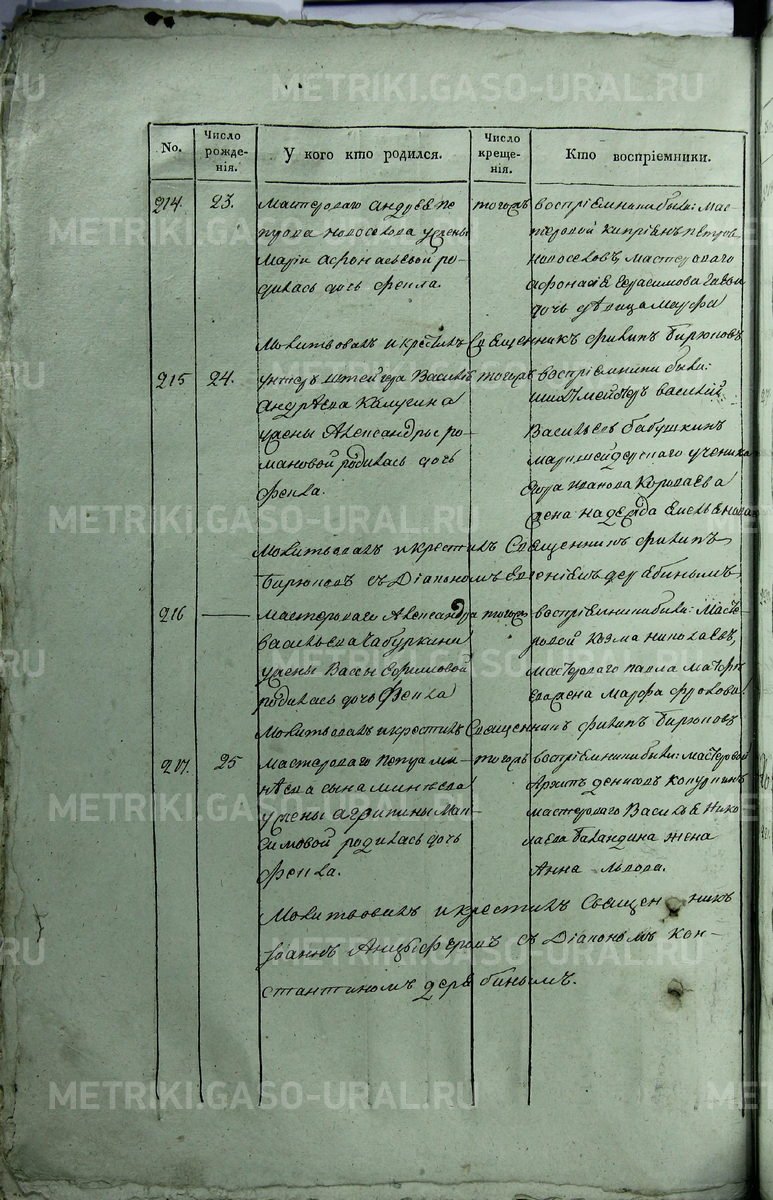 METRIKI.GASO-URAL.RU
No.
Число рожде-нія.
У кого кто родился.
Число креще-нія.
Кто воспріемники.
214
23.
Мастероваго Андрея Пе
трова Новоселова у жены
Маріи Афонасьевой ро-
дилась дочь Фекла.
тогожъ
воспріемники были: Мас-
теровой Кипріенъ Петров
Новоселовъ, мастероваго
Афонасія Герасимова
дочь девица Марфа
Молитвовалъ и крестилъ Священникъ Филипъ Бирюковъ
215
24.
Унтеръ Штейгера Василья
Андреева Калугина
у жены Александры Ро-
мановой родилась дочь
Фекла.
тогожъ
воспріемники были:
Шихтмейстеръ Василій
Васильевъ Бабушкинъ
маркшейдерскаго ученика
Егора Иванова Королаева
жена Надежда Емельенова
Молитвовалъ и крестилъ Священникъ Филипъ
Бирюковъ съ Діакономъ Евгеніемъ Дерябинымъ
216
Мастероваго Александра
Васильева Чабуркина
у жены Вассы Ефимовой
родилась дочь Фекла
тогожъ
воспріемники были: Масте-
ровой Козма Николаевъ,
мастероваго Павла
жена Марфа Фролова
Молитвовалъ и крестилъ Священникъ Филипъ Бирюковъ
217.
25
Мастероваго Петра Ми-
неева сына Минеева
у жены Агрипины Мак-
симовой родилась дочь
Фекла.
тогожъ
воспріемники были: мастеровой
Архипъ Денисовъ Копуркинъ
мастероваго Василья Нико
лаева Баландина жена
Анна Львова.
Молитвовалъ и крестилъ Священникъ
Іоаннъ Анцыферовъ съ Діакономъ Кон-
стантиномъ Дерябинымъ.